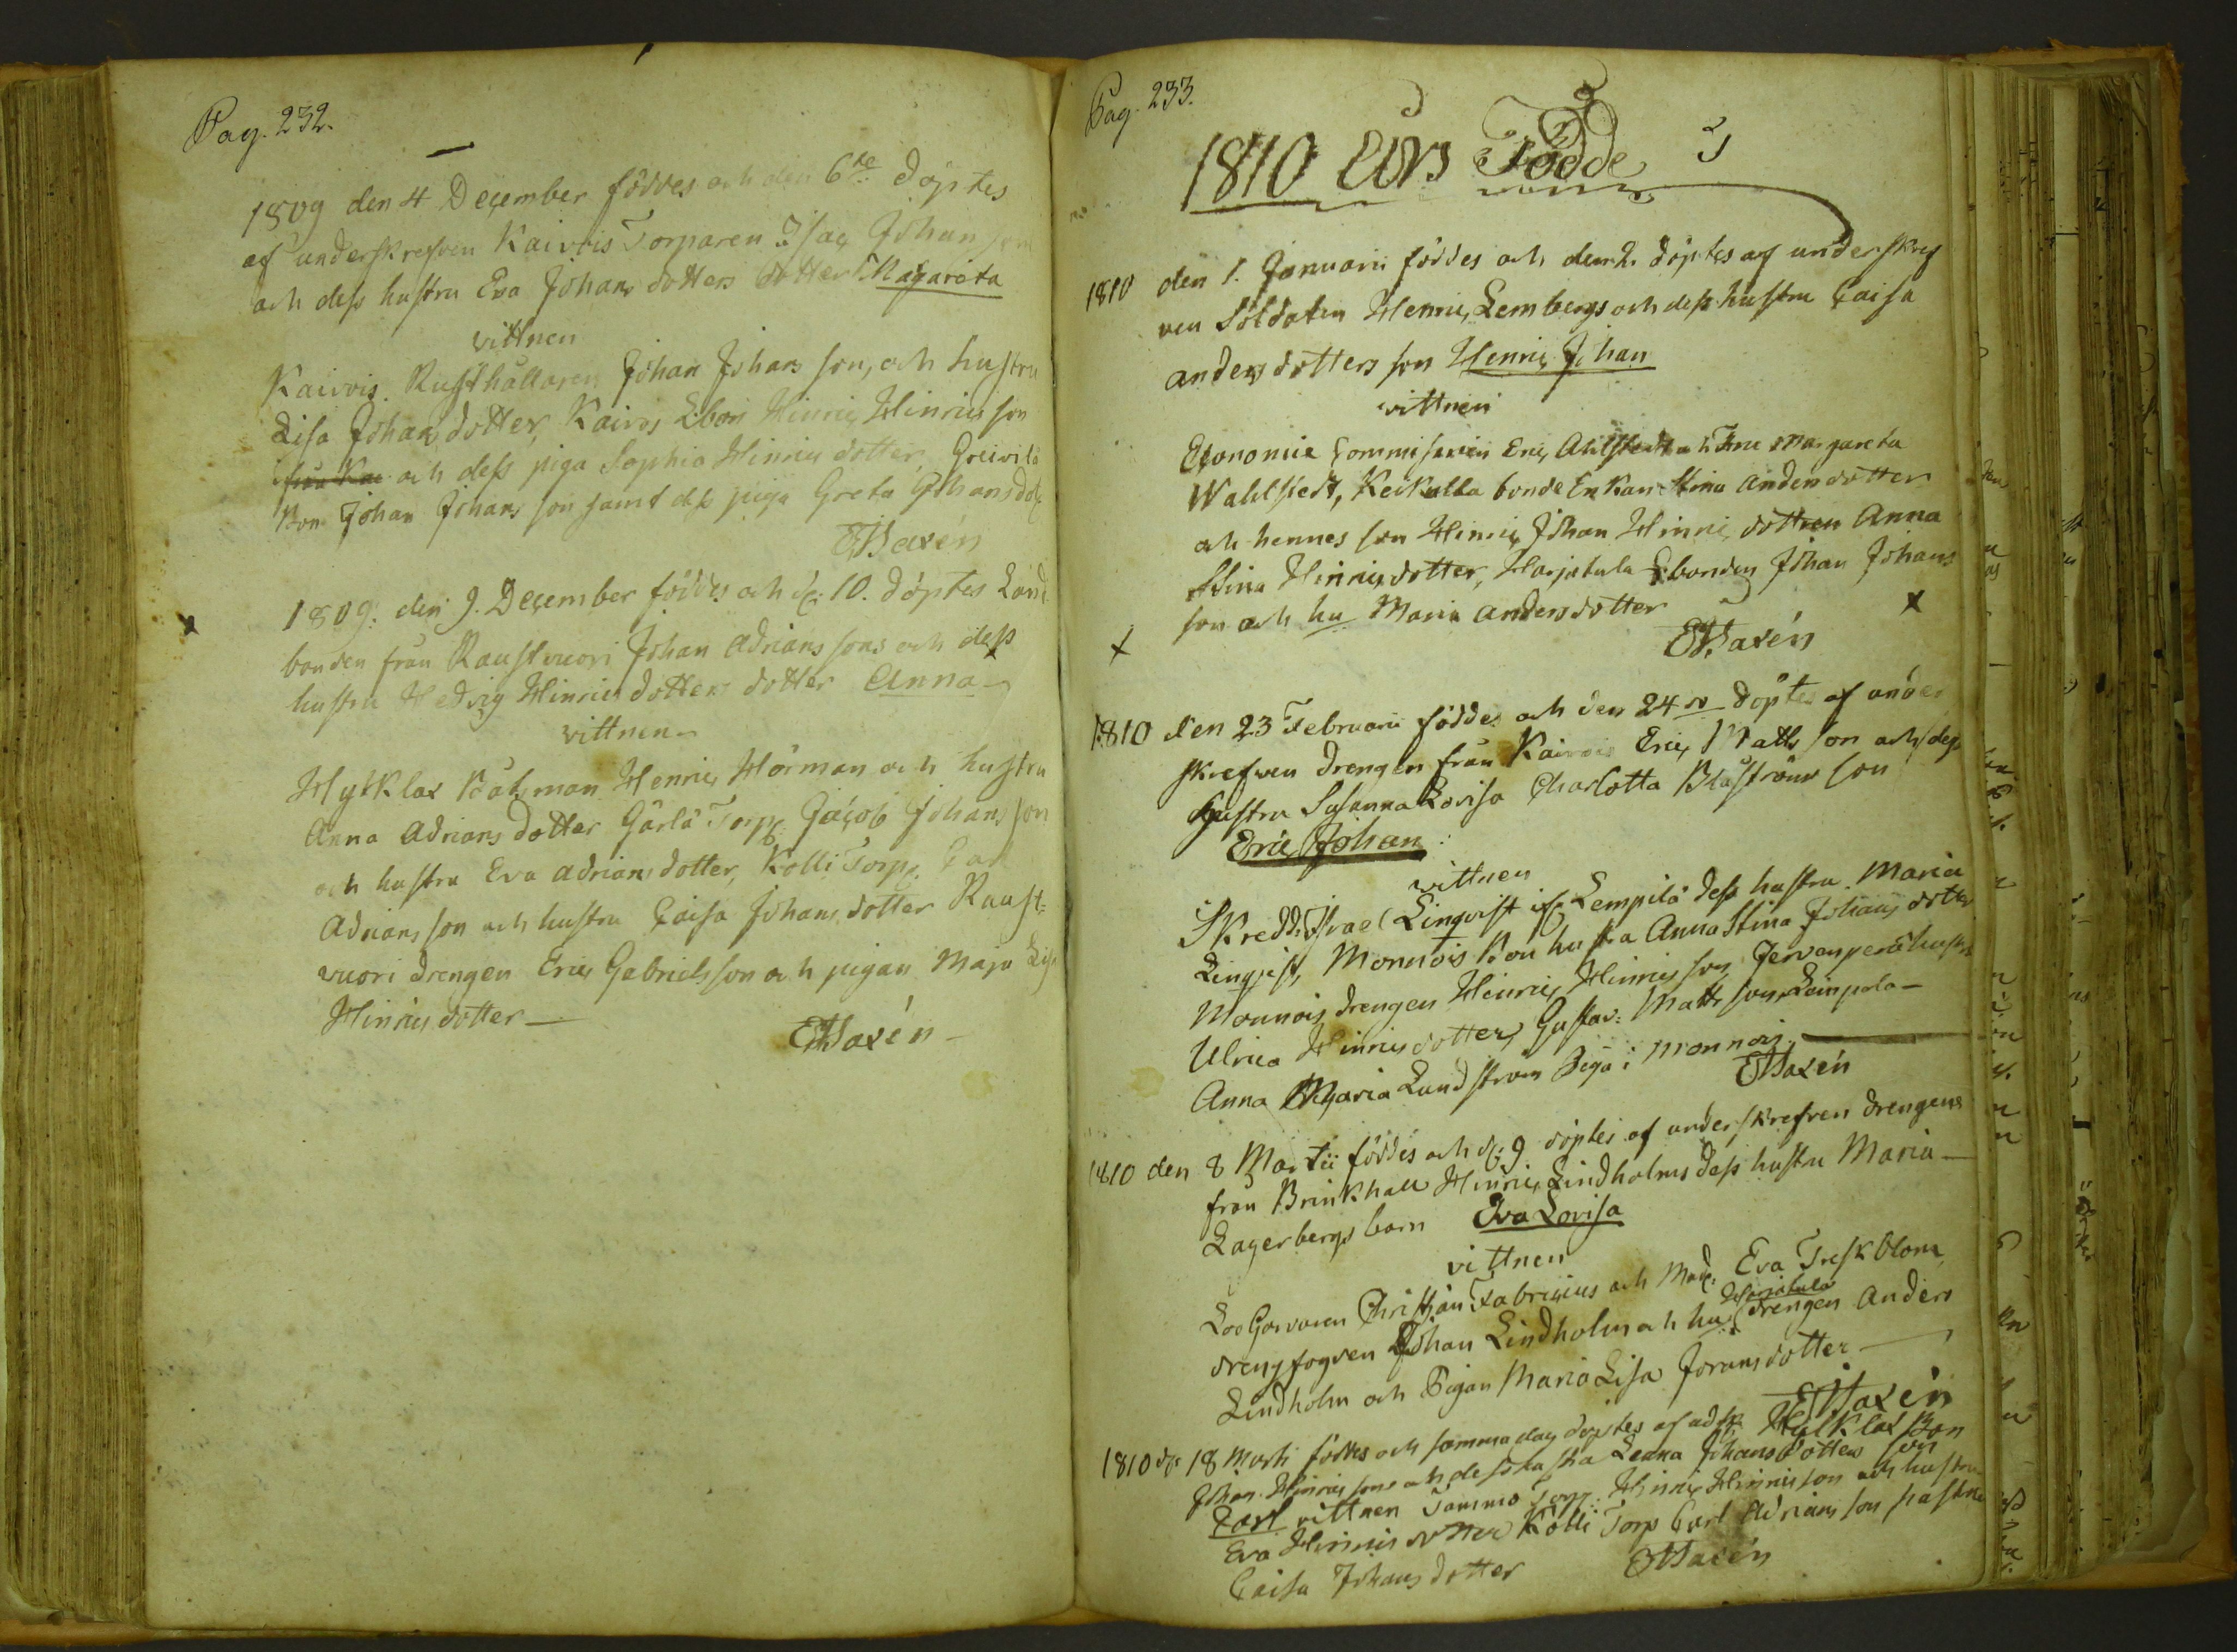 Pag. 232.
1809 den 4 December föddes och den 6te döptes
af underskrefven Kairois Torparen Isac Johansson
och dess hustru Eva Johans dotters dotter Magareta
vittnen
Kairois Rusthållaren Johan Johans son, och hustru
Lisa Johans dotter, Kairos Lbon Hinric Hinrics son
och dess piga Sophia Hinrics dotter,
Bon Johan Johans son samt dess piga Greta Johans dotr
1809. den 9. December föddes och d: 10. döptes Land
bonden från Raustvuori Johan Adrians sons och dess
hustru Hedvig Hinrics dotters dotter Anna
vittnen
Hylklax Båtsman Henric Hörman och hustru
Anna Adrians dotter Gärlä Torp: Jacob Johans son
och hustru Eva Adrians dotter, Kolli Torp: Carl
Adrians son och hustru Caisa Johans dotter Raust=
vuori drengen Eric Gabriels son och pigan Maja Lisa
Hinrics dotter
Pag. 233.
1810 Års Födde
1810 den 1. Januarii föddes och den 2. döptes af underskref
ven Soldaten Henric Lembergs och dess hustru Caisa
Anders dotters son Henric Johan
vittnen
Economie Commisarien Eric Ahlstedt och Fru Margareta
Wahlstedt, Keikalla bonde Enkan Stina Anders dotter
och hennes son Hinric Johan Hinric dottren Anna
Stina Hinrics dotter, Harjatula Lbonden Johan Johans
son och hu Maria Anders dotter
1810 den 23 Februarii föddes och den 24 döptes af under
skrefven drengen från Kairois Eric Matts son och dess
hustru Susanna Lovisa Charlotta Blåström son
Eric Johan
vittnen
Skredd: Israel Linqvist if: Lempilä dess hustru Maria
Lingvist, Monnois Bon hustra Anna Stina Johans dotter
Monnois drengen Hinric Hinrics son, Jervenperä hustru
Ulrica Hinrics dotter, Gustav: Matts son Leinpola
Anna Maria Lundström Piga i Monnois.
1810 den 8 Martii föddes och d: 9 döptes af underskrefven drengens
från Brinkhall Hinric Lindholms dess hustru Maria
Lagerbergs barn Eva Lovisa
vittnen
Loo Garvaren Christian Fabricius och Mad: Eva Treskblom
drengfogden Johan Lindholm och hu: Harjatula drengen Anders
Lindholm och Pigan Maria Lisa Jorans dotter
1810 d: 18 Marti föddes och samma dag döptes af udsk: Hylklax Bon
Johan Hinrics sons och dess hustru Leena Johans dotters son
Carl vittnen Tammo Torp: Hinric Hinrics son och hustru
Eva Hinrics dotter Kolli Torp Carl Adrians son hustru
Caisa Johans dotter